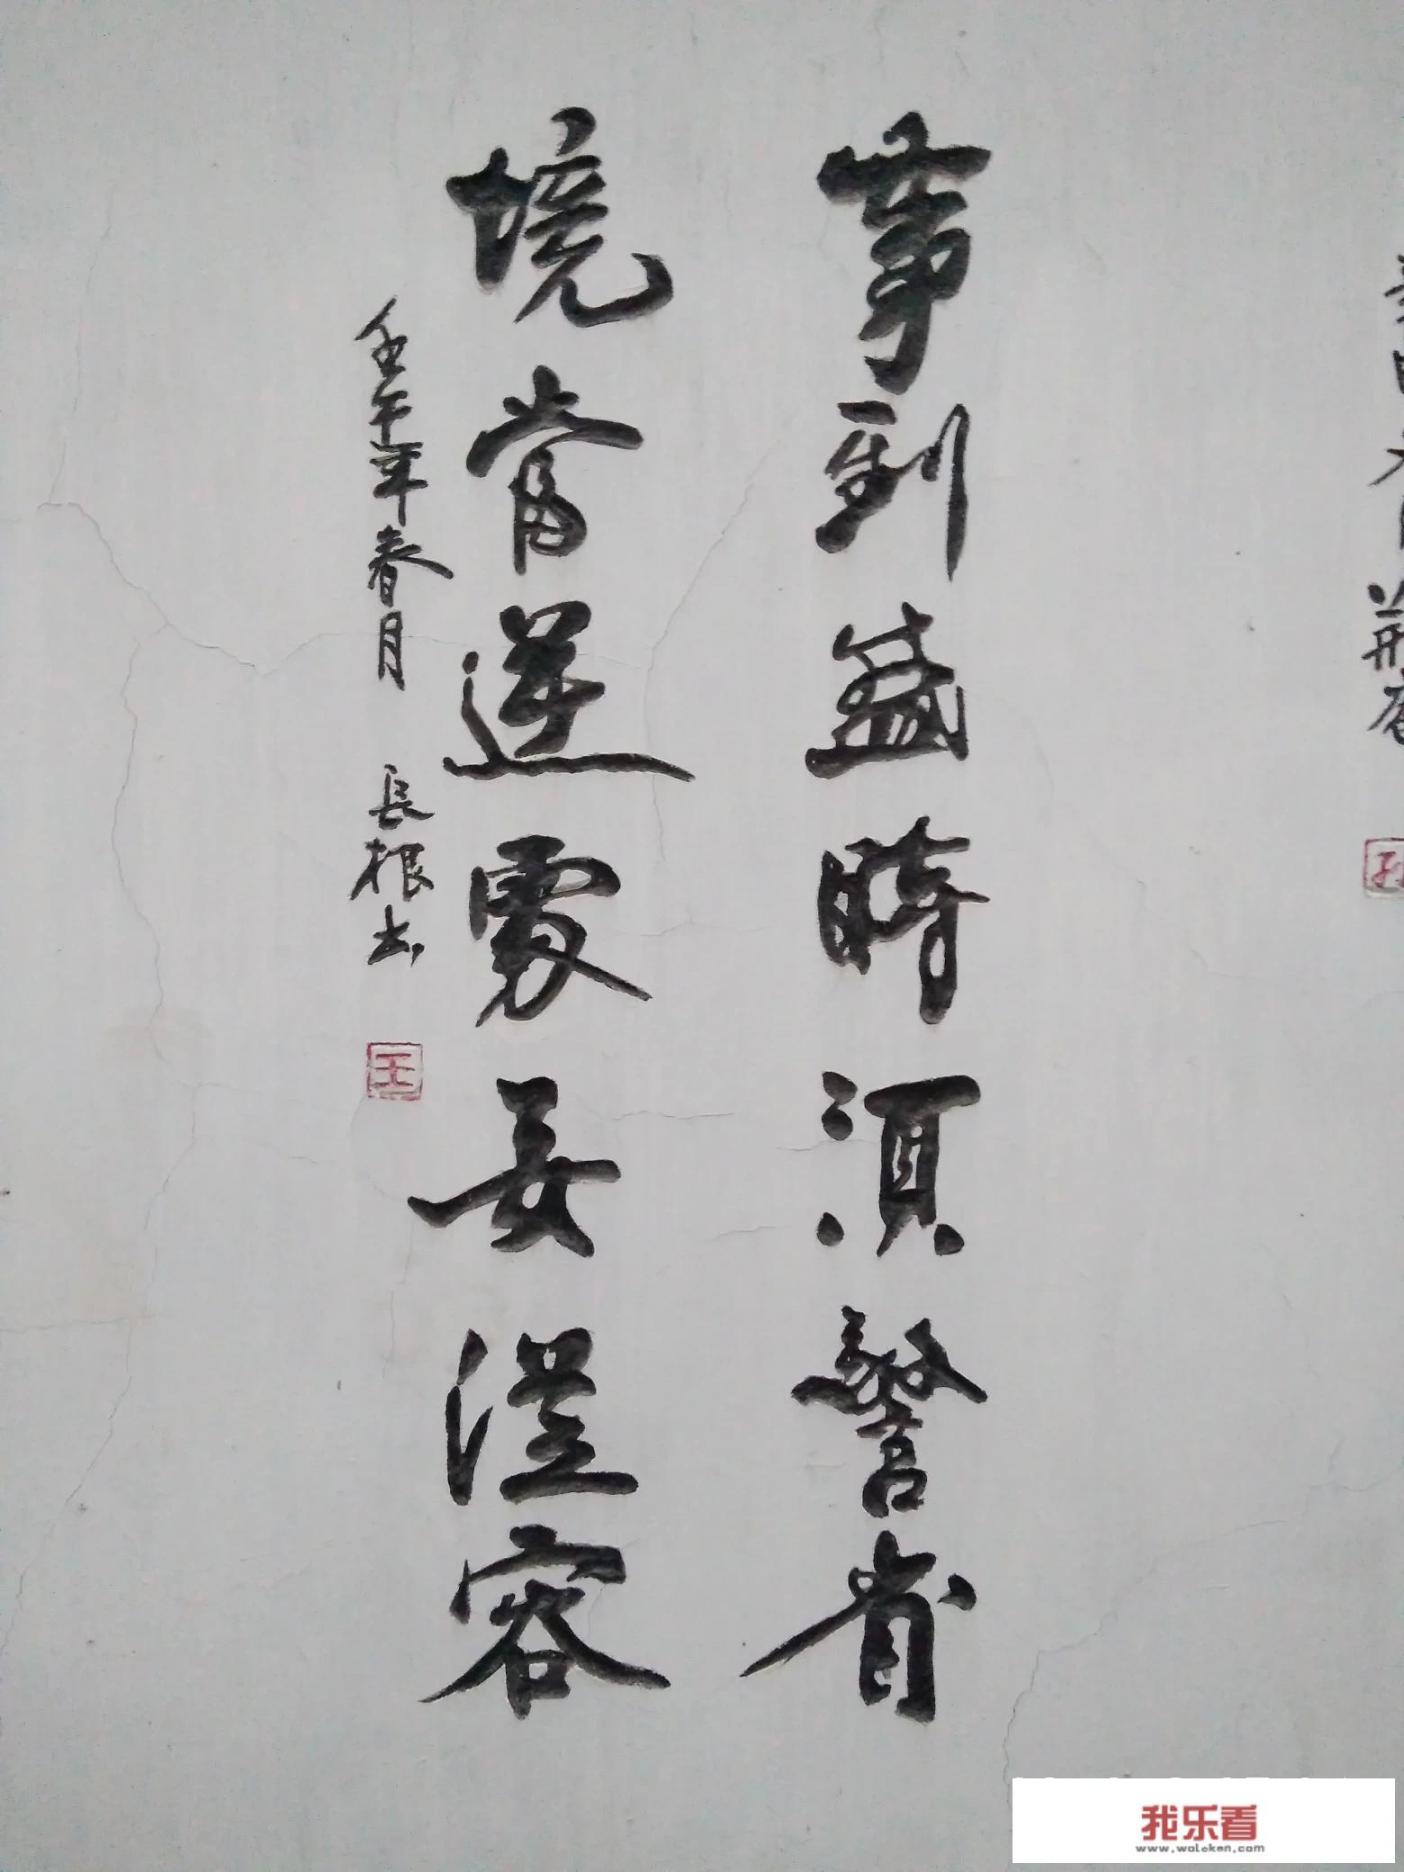 事到盛時須警省
境當逆處要從容
壬午年春月 長根书
王
我乐看
www.woleken.com